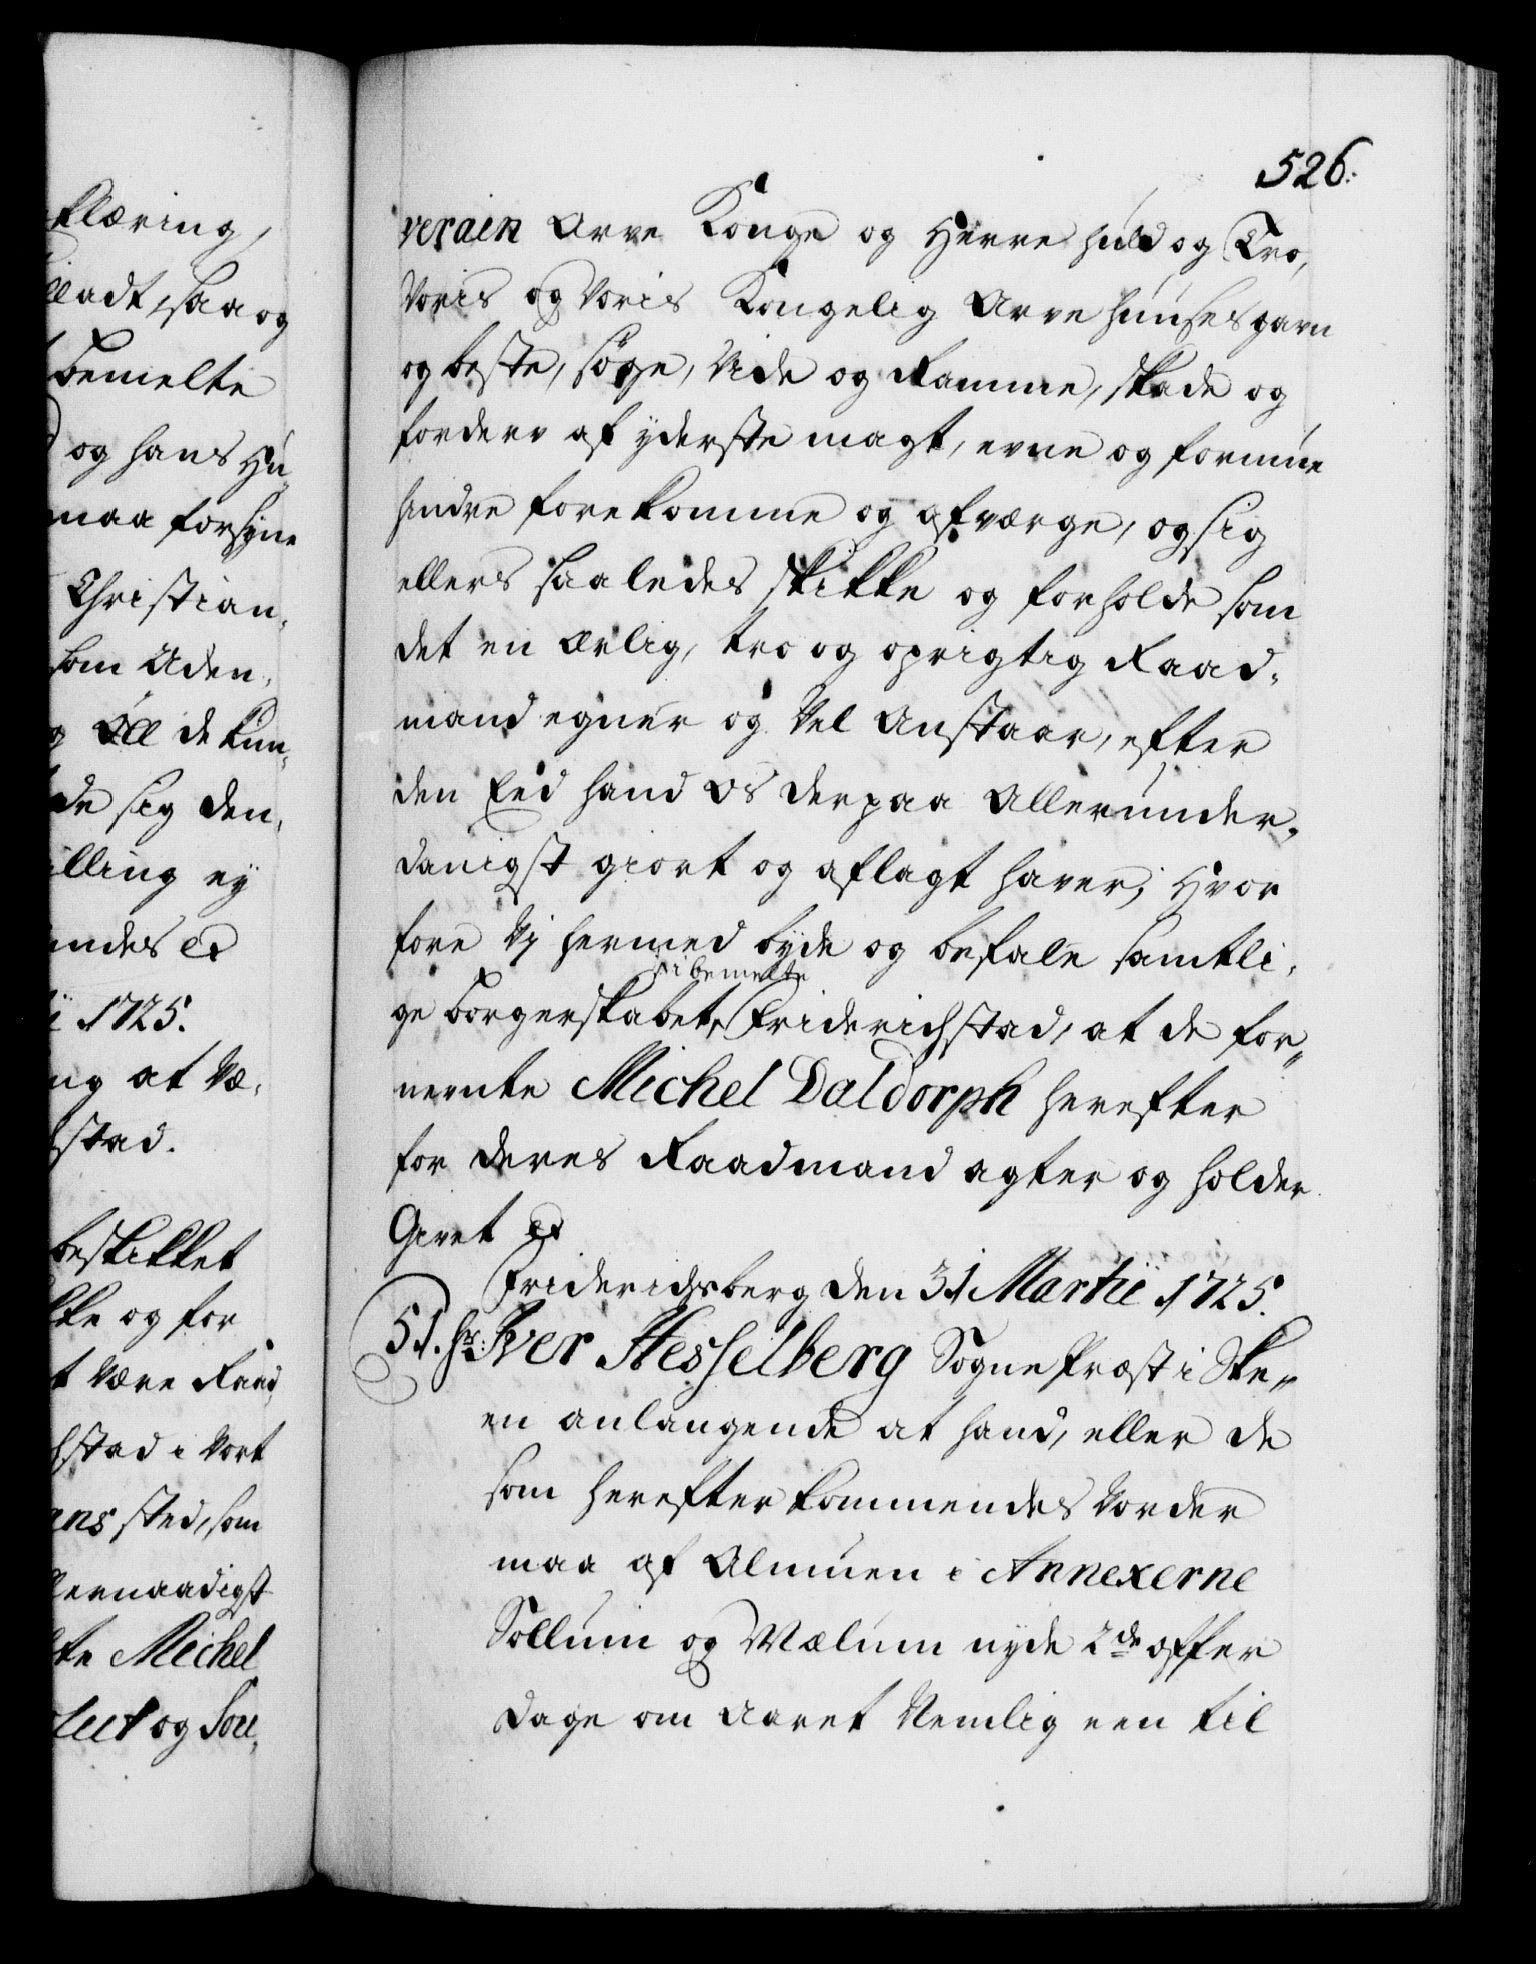 klæring,
lladt, saa og
bemelte
og hans Hu-
maa forsyne
Christian,
som Uden,
Øll de kun,
de sig den,
illing ey
andes &
1725.
ng at Væ,
stad.
beskikket
kke og for
t være Raad
hstad i Vort
ans sted, som
lernaadigst
te Michel
lect og Sou,
526.
verain Arve Konge og Herre huld og Tro,
Voris og Voris Kongelig Arve Huuses gavn
og beste, søge, Vide og Ramme, skade og
forderv af yderste magt, evne og formue
hindre forekomme og afværge, og sig
ellers saaledes skikke og forholde som
det en Ærlig, tro og oprigtig Raad,
mand egner og Vel Anstaar, efter
den Eed hand os derpaa Allerunder,
danigst giort og aflagt haver; Hvor
fore Vj hermed byde og befale samtli,
i bemelte
ge borgerskabet, Friderichstad, at de for,,
nevnte Michel Daldorph herefter
for deres Raadmand agter og holder
Givet &
Friderichsberg den 31 Martii 1725.
51. Hr: Iver Hesselberg Sogne Præst i Ske,,
en anlangende at hand, eller de
som herefter kommendes Vorder
maa af Almuen i Annexerne
Sollum og Mælum nyde 2de offer
Dage om Aaret Nemlig een til